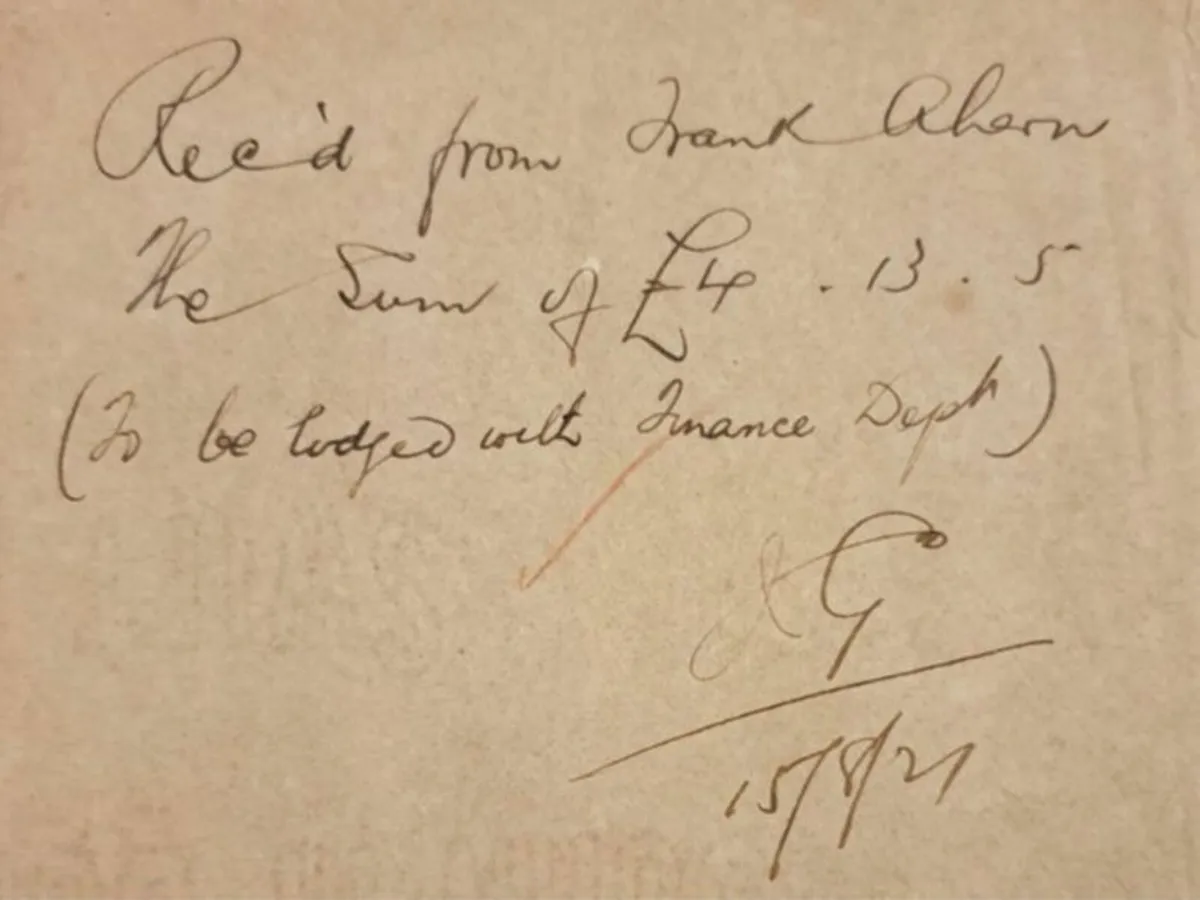 Rec'd from Frank Ahern
The Sum of £4 . 13 . 5
(To be lodged with Finance Dept)
15/8/21